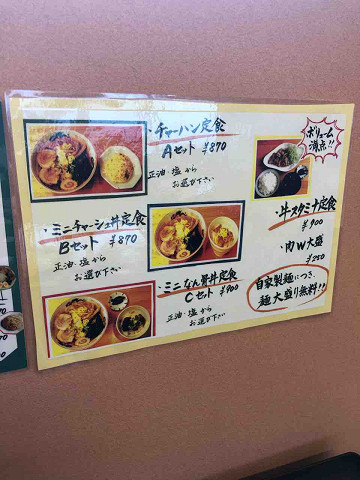 ・チャーハン定食
Aセット ¥870
正油・塩から
お選び下さい
ボリューム
満点!!
・ミニチャーシュー丼定食
Bセット ¥870
正油・塩から
お選び下さい
・牛スタミナ定食
¥900
・肉W大盛
¥250
・ミニなん骨丼定食
Cセット ¥900
正油・塩から
お選び下さい
自家製麺につき、
麺大盛り無料!!